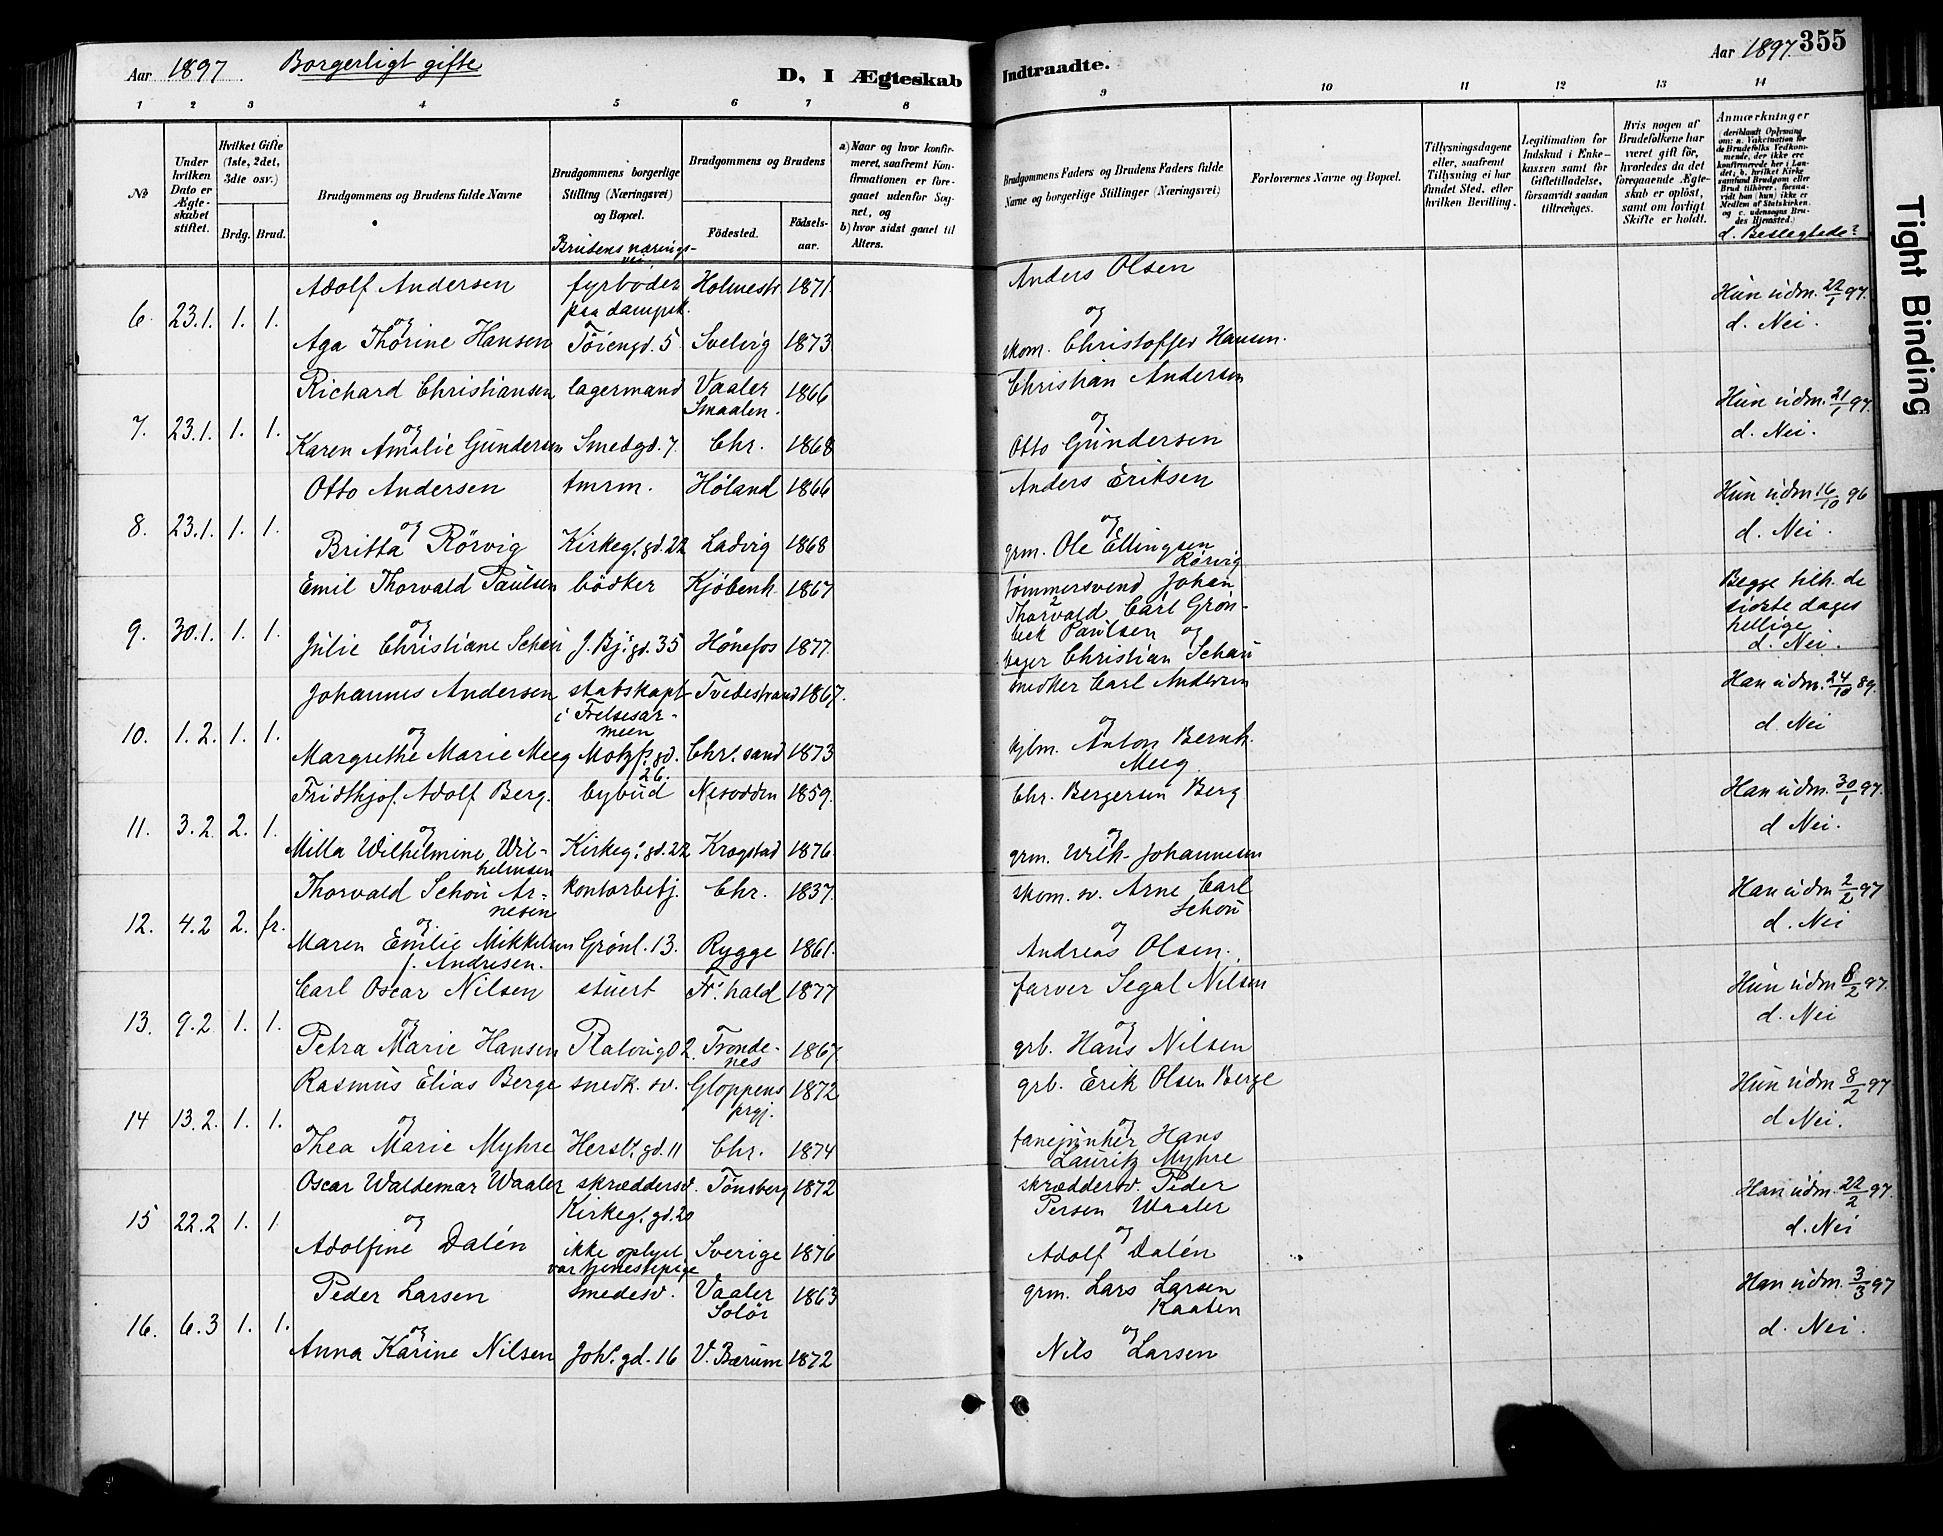 Aar 1897. Borgerligt gifte
D, I Ægteskab Indtraadte.
Aar 1897. 355
1 2 3 4 5 6 7 8 9 10 11 12 13 14
No
Under hvilken Dato er Ægteskabet stiftet.
Hvilket Gifte (1ste, 2det, 3die osv.)
Brdg. Brud.
Brudgommens og Brudens fulde Navne
Brudgommens borgerlige Stilling (Næringsvei) og Bopæl.
Brudens nærings-
vei
Brudgommens og Brudens
Födested.
Födselsaar.
a) Naar og hvor konfirmeret, saafremt Konfirmationen er foregaaet udenfor Sognet, og
b) hvor sidst gaaet til Alters.
Brudgommens Faders og Brudens Faders fulde Navne og borgerlige Stillinger (Næringsvei)
Forlovernes Navne og Bopæl.
Tillysningsdagene eller, saafremt Tillysning ei har fundet Sted, efter hvilken Bevilling.
Legitimation for Indskud i Enkekassen samt for Giftetilladelse, forsaavidt saadan tiltrænges.
Hvis nogen af Brudefolkene har været gift för, hvorledes da det foregaaende Ægteskab er oplöst, samt om lovligt Skifte er holdt.
Anmærkninger
d. Beslegtede?
Tight Binding
6. 23.1. 1. 1. Adolf Andersen fyrböder Holmestr. 1871. Anders Olsen Hun udm. 22/1 97.
paa dampsk.
og og d. Nei.
Aga Thorine Hansen Töiengd. 5 Svelvig 1873 skom. Christoffer Hansen.
7. 23.1. 1. 1. Richard Christiansen lagermand Vaaler 1866 Christian Andersen Hun udm. 21/1 97.
Smaalen.
og og d. Nei.
Karen Amalie Gundersen Smedgd. 7. Chr. 1868 Otto Gundersen
8. 23.1. 1. 1. Otto Andersen tmrm. Höland 1866 Anders Eriksen Hun udm 16/10 96
og og d. Nei.
Britta Rörvig Kirkeg. gd. 22 Ladvig 1868 grm. Ole Ellingsen
Rörvig
9. 30.1. 1. 1. Emil Thorvald Paulsen bödker Kjöbenh. 1867 tömmersvend Johan Begge tilh. de
Thorvald Carl Grön- sidste dages
og beck Paulsen og hellige
Julie Christiane Schau J. Bj. gd. 35 Hönefos 1877. bager Christian Schau d. Nei.
10. 1.2. 1. 1. Johannes Andersen stabskapt. Tvedestrand 1867. snedker Carl Andersen Han udm. 24/10 89.
i Frelsesar-
meen
og og d Nei
Margrethe Marie Meeg Motzf. gd. 26. Chr. sand 1873 kjbm. Anton Bernh.
Meeg
11. 3.2. 2. 1. Fridthjof Adolf Berg. bybud Nesodden 1859. Chr. Bergersen Berg Han udm. 30/1 97.
og og d Nei.
Milla Wilhelmine Wil- Kirkeg. gd. 22 Krogstad 1876. grm. Wilh. Johannesen
helmsen
12. 4.2 2. fr. Thorvald Schou Ar- kontorbetj. Chr. 1837. skom. sv. Arne Carl Han udm 2/2 97
nesen Schou
og og d. Nei
Maren Emilie Mikkelsen Grönl. 13. Rygge 1861. Andreas Olsen.
f. Andresen.
13. 9.2. 1. 1. Carl Oscar Nilsen stuert Fr. hald 1877 farver Segal Nilsen Hun udm 8/2 97.
og og d. Nei
Petra Marie Hansen Tronde- 1867 grb. Hans Nilsen
nes
14 13.2. 1. 1. Rasmus Elias Berge snedk. sv. Gloppens 1872 grb. Erik Olsen Berge Hun udm 8/2 97
prgj.
og og d Nei.
Thea Marie Myhre Hersl. gd. 11 Chr. 1874 fanejunker Hans
Lauritz Myhre
15 22.2 1. 1. Oscar Waldemar Waaler skræddersv. Tönsberg 1872 skræddersv. Peder Han udm. 22/2 97.
Kirkeg. gd. 20 Persen Waaler
og og d. Nei
Adolfine Dalén ikke oplyst Sverige 1876 Adolf Dalén
var tjenestepige
16. 6.3 1. 1. Peder Larsen smedesv. Vaaler 1863 grm. Lars Larsen Han udm. 3/3 97
Solör Kaaten
og og d. Nei.
Anna Karine Nilsen Joh. gd. 16 V. Bærum 1872 Nils Larsen